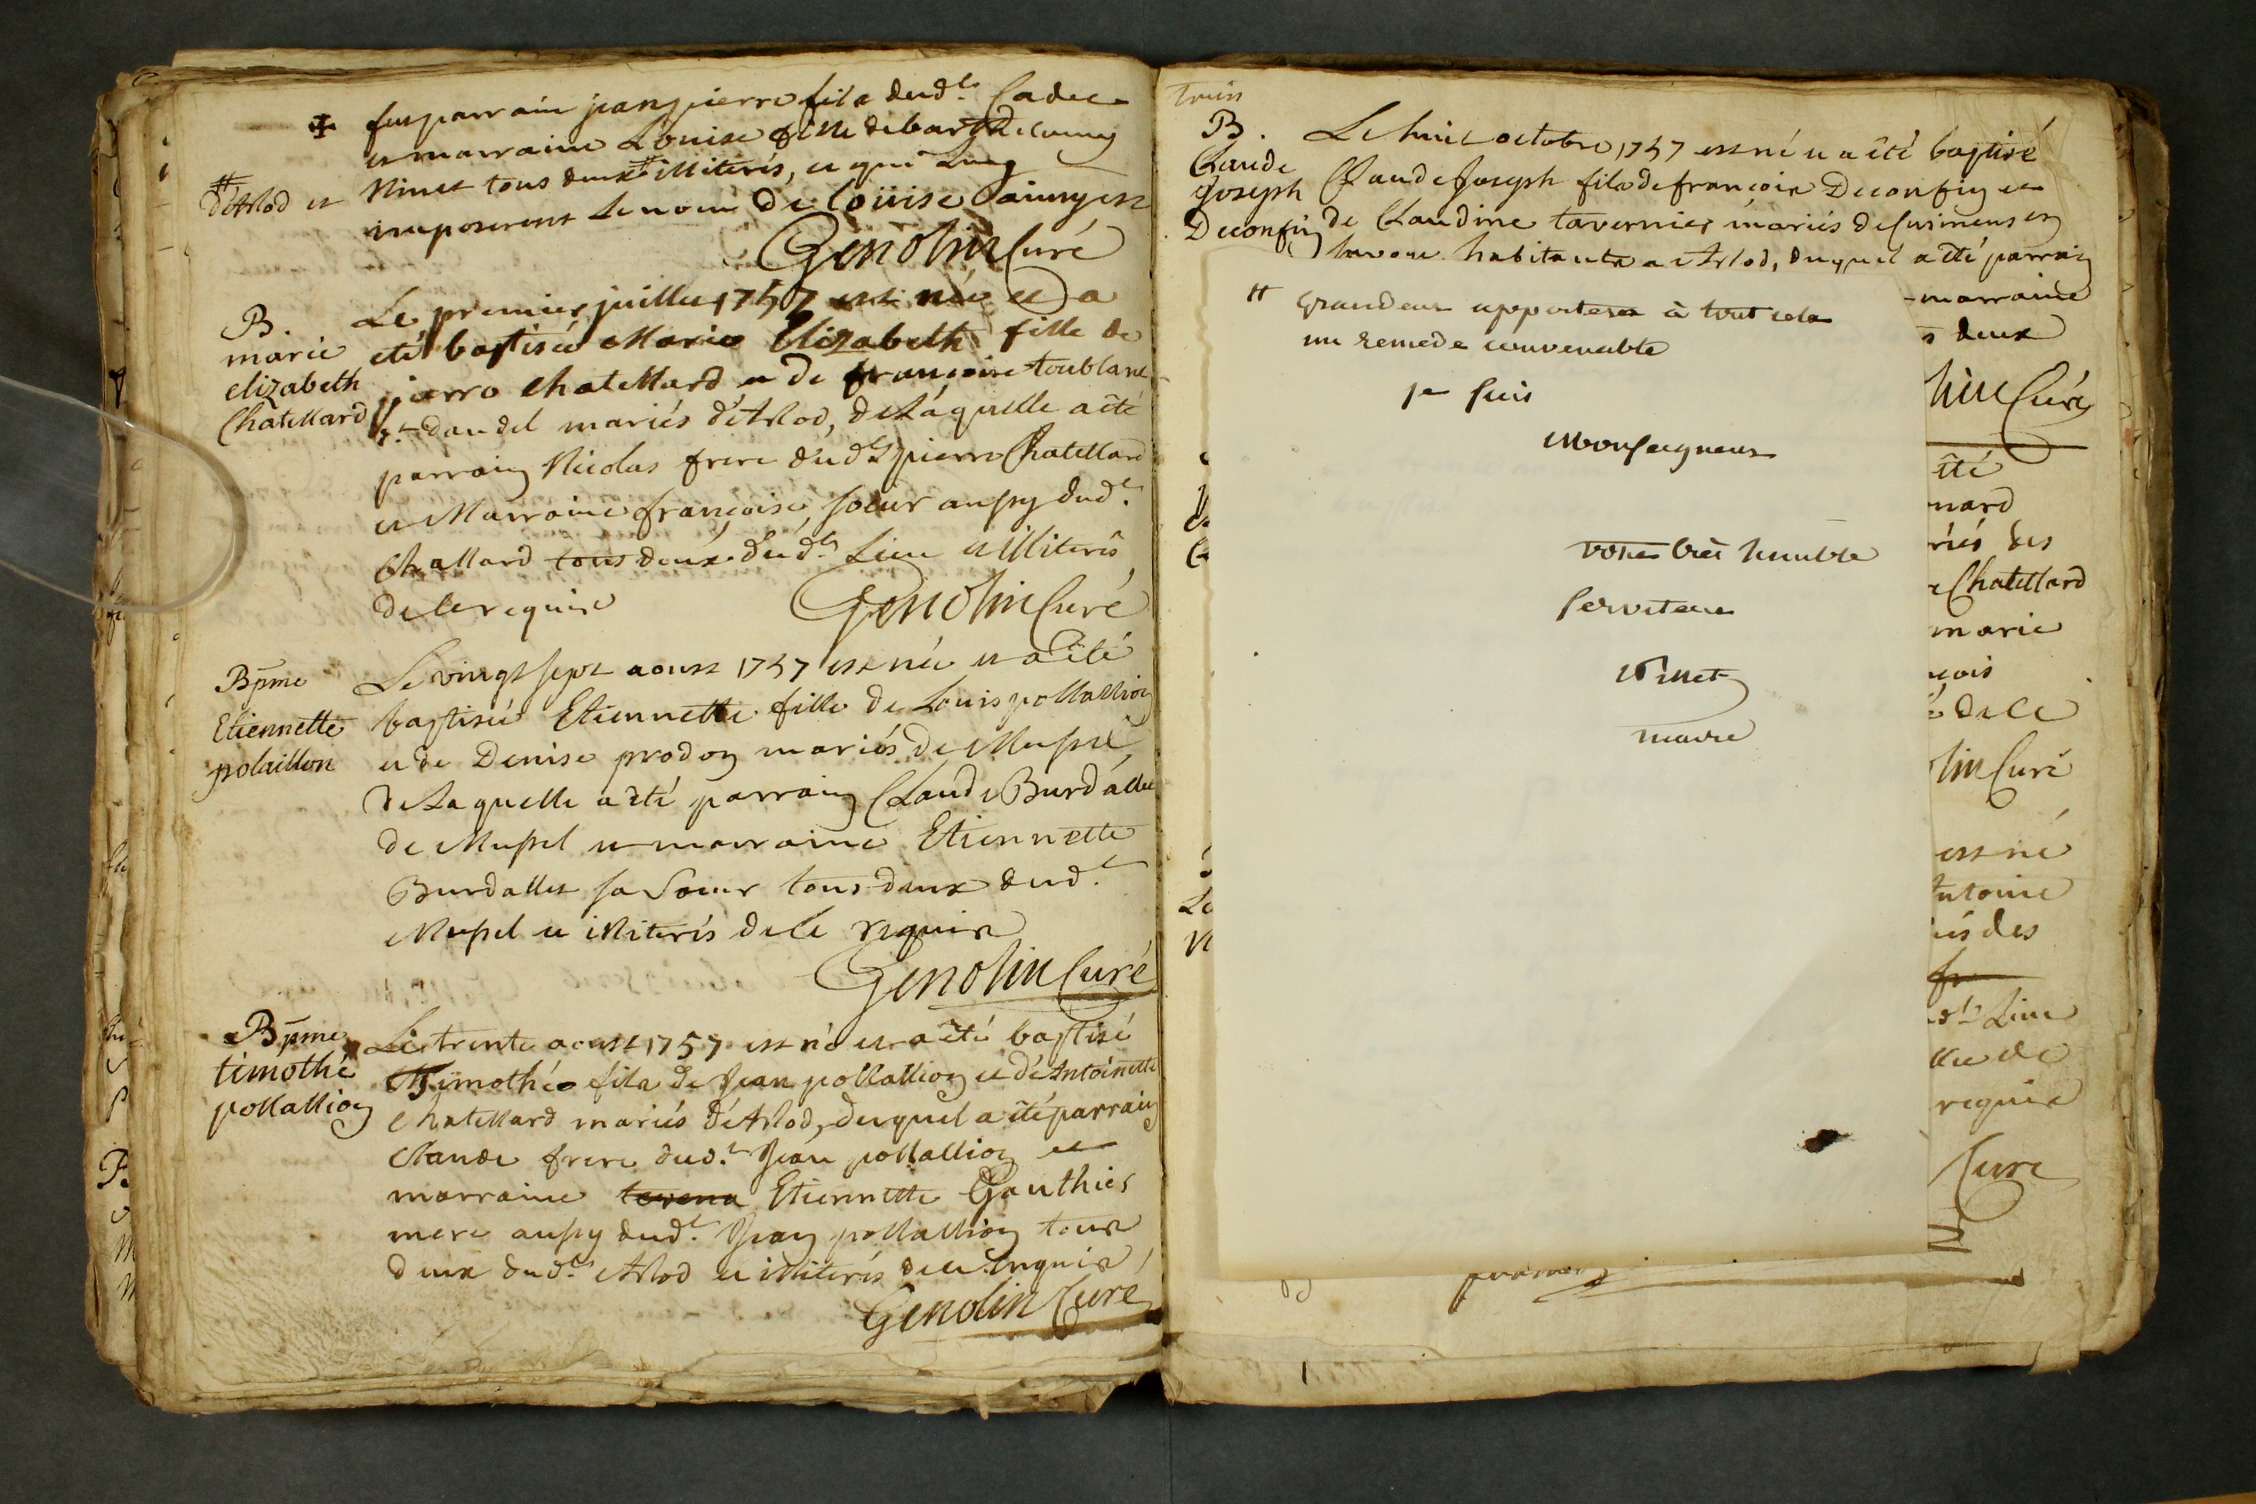 ✠ fut parrain jean pierre fils dud.t Cadet
et marraine Louise fille de
Ninet tous deux # illiterés, et qui Luy
# d'Arlod et
imposerent Le nom De Loüise
Genolin Curé
B.
marie
elizabeth
Chatellard
Le premier juillet 1757 est née et a
eté baptisée Marie Elizabeth fille de
pierre Chatellard et de françoise toublanc
dit daudel mariés d'Arlod, de Laquelle a été
parrain Nicolas frere dud.t pierre Chatellard
et Marraine françoise soeur aussy dud.t
Challard tous deux dud.t Lieu et illiterés
de ce requis
Genolin Curé
Bpme
Etiennette
polaillon
Le vingt sept aoust 1757 est née et a été
baptisée Etiennette fille de Louis pollallion
et de Denise prodon mariés de Mussel
de Laquelle a été parrain Claude Burdallet
de Mussel et marraine Etiennette
Burdallet sa Soeur tous deux dud.t
Mussel et illiterés de ce requis
Genolin Curé
Bpme
timothé
pollallion
Le trente aoust 1757 est né et a été baptisé
Timothée fils de Jean pollallion et d'Antoinette
Chatellard mariés d'Arlod, duquel a été parrain
Claude frere dud.t Jean pollallion et
marraine Etiennette Gauthier
mere aussy dud.t Jean pollallion tous
deux dud.t Arlod et illiterés de ce requis
Genolin Curé
B.
Claude
Joseph
Deconfin
Le huit octobre 1757 est né et a été baptisé
Claude Joseph fils de françois Deconfin et
de Claudine tavernier mariés de Cusinens en
Savoye habitants a Arlod, duquel a été parrain
marraine
deux
lin Curé
été
nard
riés des
Chatellard
marie
çois
de ce
lin Curé
est né
Antoine
iés des
fr
d.t Lieu
lle de
requis
Curé
# Grandeur apportera à tout cela
un remede convenable
je suis
Monseigneur
votre très humble
serviteur
Ninet
maire